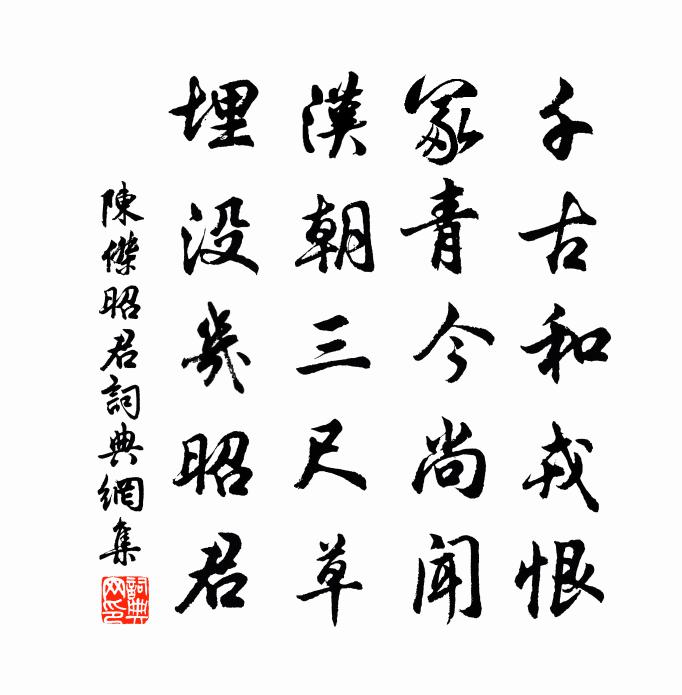 千古和戎恨
冢青今尚聞
漢朝三尺草
埋没幾昭君
陳傑昭君詞典網集
詞典網印